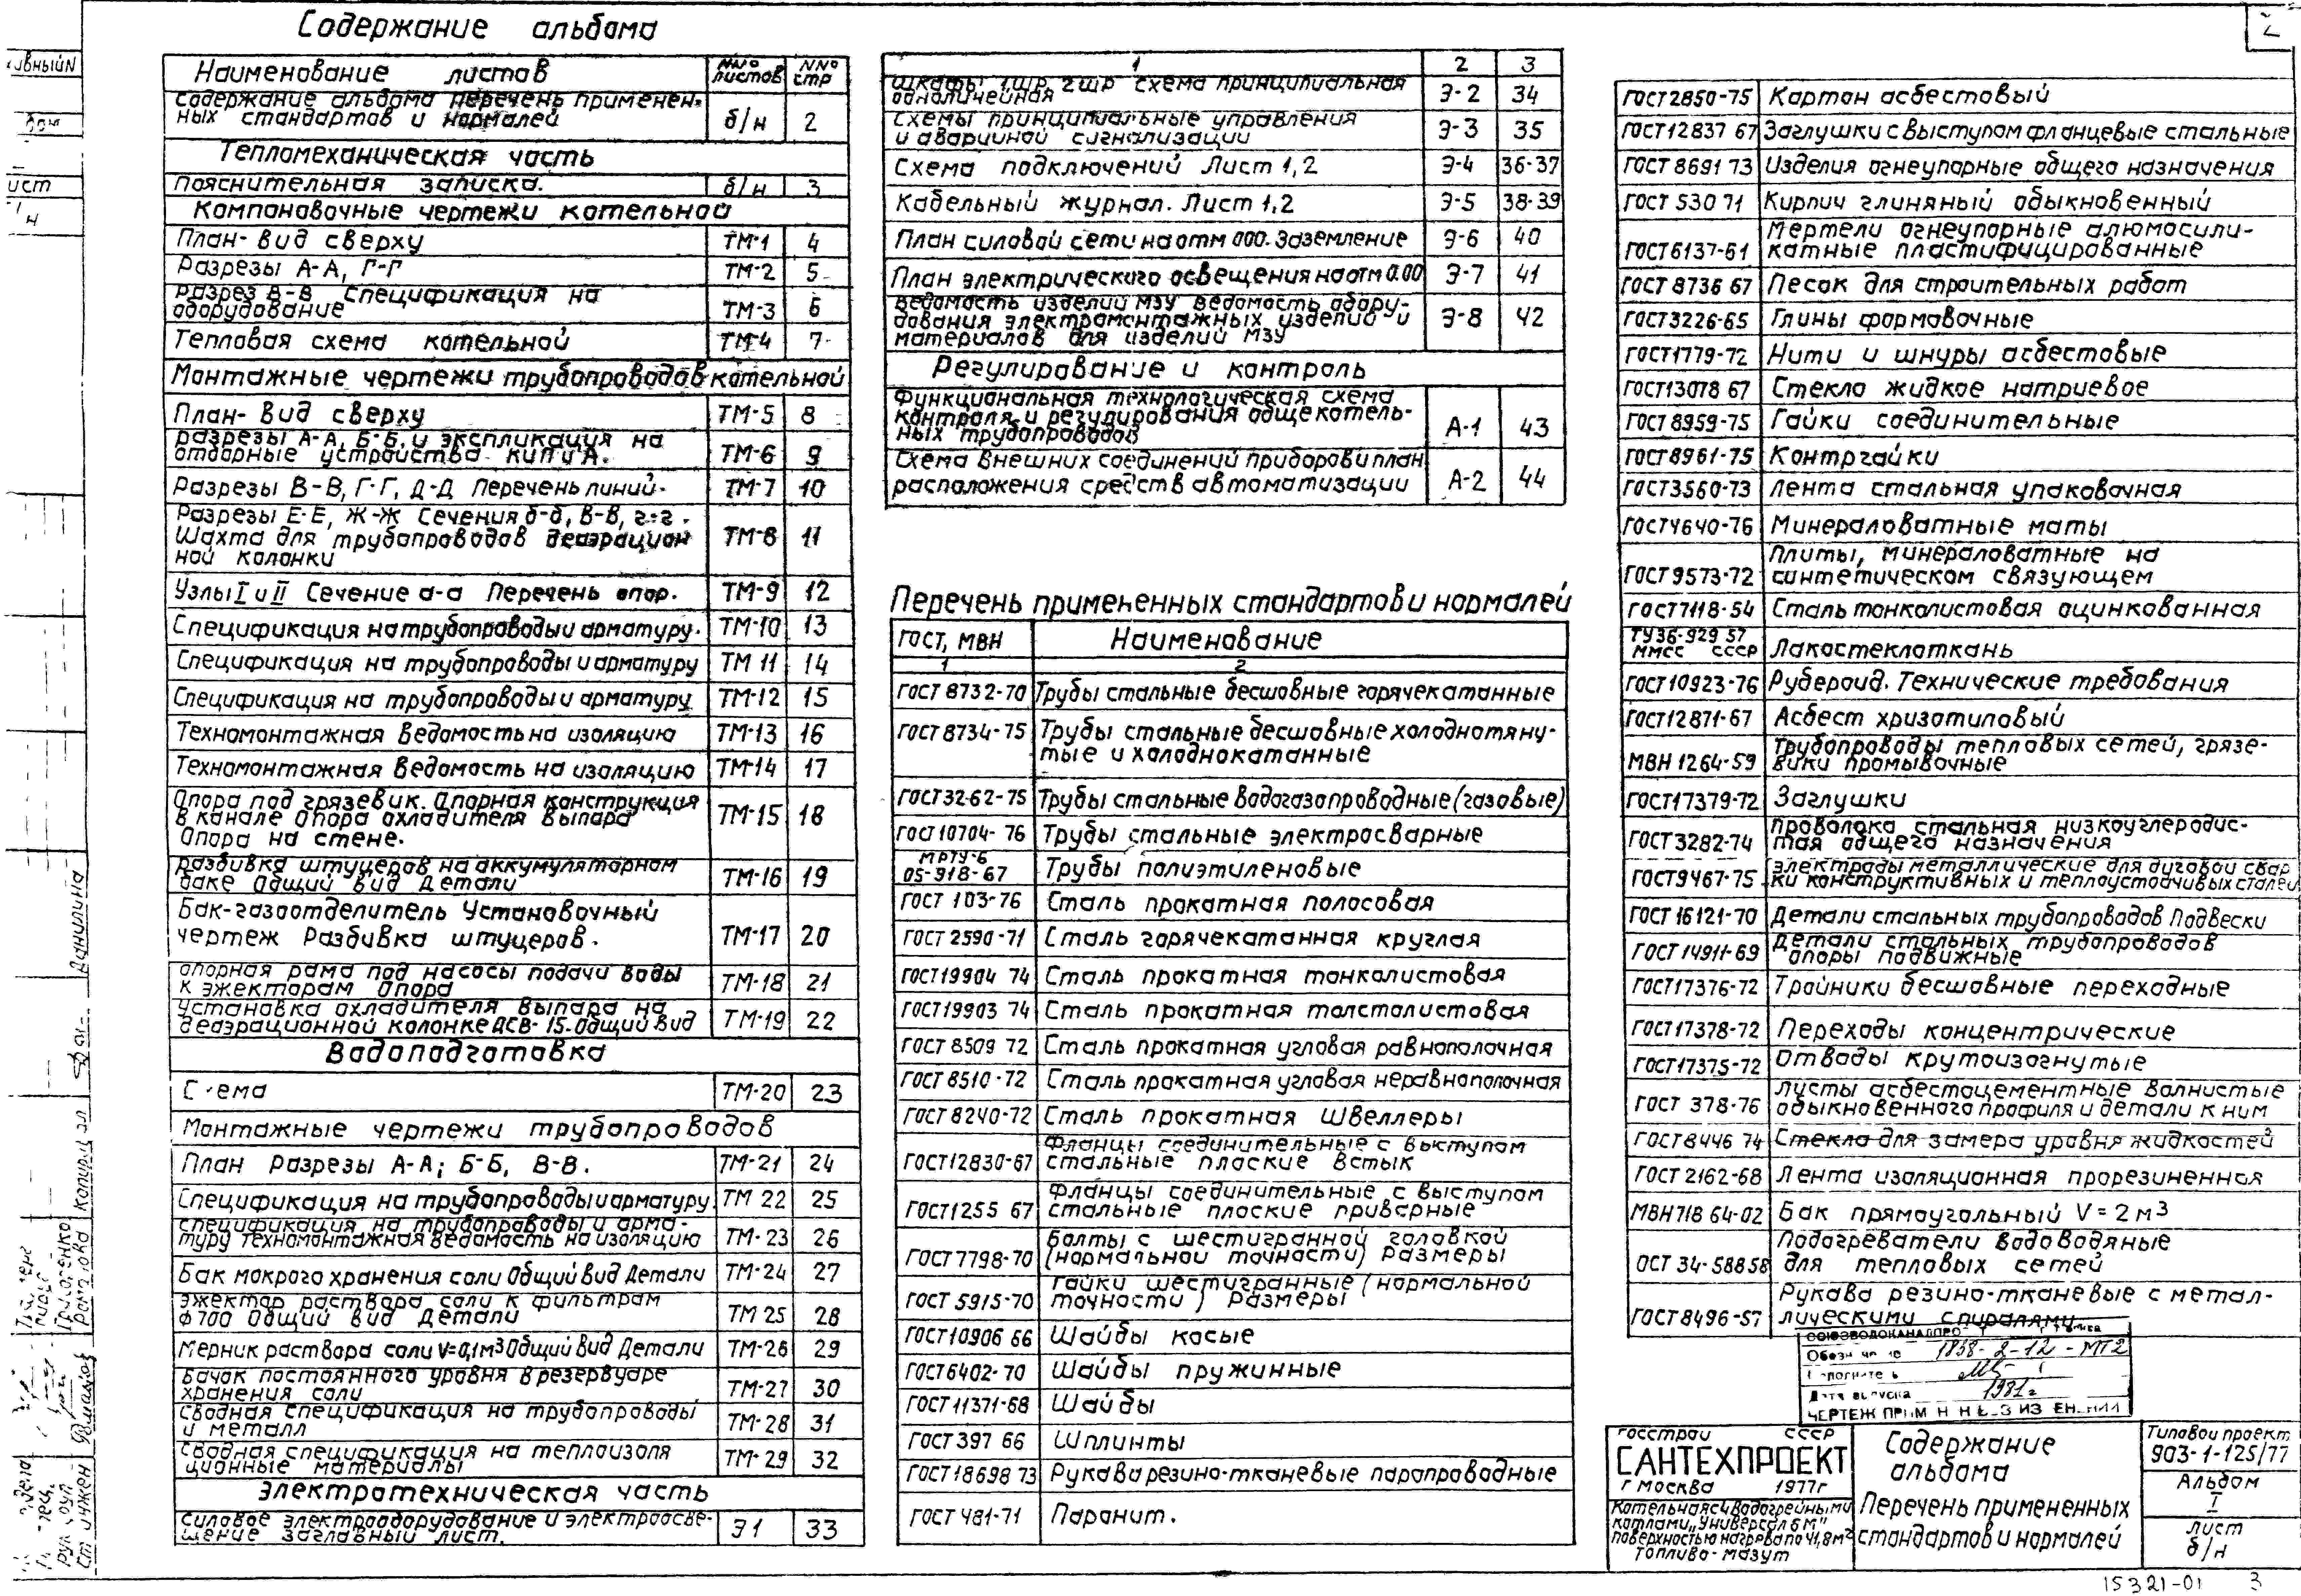 2
Содержание альбома
Наименование листов NNº листов NNº стр
Содержание альбома перечень применен-
ных стандартов и нормалей б/н 2
Тепломеханическая часть
Пояснительная записка. б/н 3
Компоновочные чертежи котельной
План- вид сверху ТМ-1 4
Разрезы А-А, Г-Г ТМ-2 5
Разрез В-В Спецификация на
оборудование ТМ-3 6
Тепловая схема котельной ТМ-4 7
Монтажные чертежи трубопроводов котельной
План- вид сверху ТМ-5 8
Разрезы А-А, Б-Б, и экспликация на
отборные устройства КИП и А. ТМ-6 9
Разрезы В-В, Г-Г, Д-Д Перечень линий. ТМ-7 10
Разрезы Е-Е, Ж-Ж Сечения б-б, в-в, г-г.
Шахта для трубопроводов деаэрацион
ной колонки ТМ-8 11
Узлы I и II Сечение а-а Перечень опор. ТМ-9 12
Спецификация на трубопроводы и арматуру. ТМ-10 13
Спецификация на трубопроводы и арматуру ТМ 11 14
Спецификация на трубопроводы и арматуру ТМ-12 15
Техномонтажная ведомость на изоляцию ТМ-13 16
Техномонтажная ведомость на изоляцию ТМ-14 17
Опора под грязевик. Опорная конструкция
в канале Опора охладителя выпара
Опора на стене. ТМ-15 18
Разбивка штуцеров на аккумуляторном
баке Общий вид Детали ТМ-16 19
Бак-газоотделитель Установочный
чертеж Разбивка штуцеров. ТМ-17 20
Опорная рама под насосы подачи воды
к эжекторам Опора ТМ-18 21
Установка охладителя выпара на
деаэрационной колонке ДСВ-15. Общий вид ТМ-19 22
Водоподготовка
Схема ТМ-20 23
Монтажные чертежи трубопроводов
План Разрезы А-А; Б-Б, В-В. ТМ-21 24
Спецификация на трубопроводы и арматуру. ТМ 22 25
Спецификация на трубопроводы и арма-
туру Техномонтажная ведомость на изоляцию ТМ-23 26
Бак мокрого хранения соли Общий вид Детали ТМ-24 27
Эжектор раствора соли к фильтрам
ф700 Общий вид Детали ТМ 25 28
Мерник раствора соли V=0,1м3 Общий вид Детали ТМ-26 29
Бачок постоянного уровня в резервуаре
хранения соли ТМ-27 30
Сводная спецификация на трубопроводы
и металл ТМ-28 31
Сводная спецификация на теплоизоля
ционные материалы ТМ-29 32
Электротехническая часть
Силовое электрооборудование и электроосве-
щение заглавный лист. Э1 33
1 2 3
Шкафы 1ШР, 2ШР Схема принципиальная
однолинейная Э-2 34
Схемы принципиальные управления
и аварийной сигнализации Э-3 35
Схема подключений Лист 1,2 Э-4 36-37
Кабельный журнал. Лист 1,2 Э-5 38-39
План силовой сети на отм 000. Заземление Э-6 40
План электрического освещения на отм 0.00 Э-7 41
Ведомость изделий МЗУ Ведомость обору-
дования электромонтажных изделий и
материалов для изделий МЗУ Э-8 42
Регулирование и контроль
Функциональная технологическая схема
контроля и регулирования общекотель-
ных трубопроводов А-1 43
Схема внешних соединений приборов и план
расположения средств автоматизации А-2 44
Перечень примененных стандартов и нормалей
ГОСТ, МВН Наименование
1 2
ГОСТ 8732-70 Трубы стальные бесшовные горячекатанные
ГОСТ 8734-75 Трубы стальные бесшовные холоднотяну-
тые и холоднокатанные
ГОСТ 32-62-75 Трубы стальные водогазопроводные (газовые)
ГОСТ 10704-76 Трубы стальные электросварные
МРТУ-6
05-918-67 Трубы полиэтиленовые
ГОСТ 103-76 Сталь прокатная полосовая
ГОСТ 2590-71 Сталь горячекатанная круглая
ГОСТ19904 74 Сталь прокатная тонколистовая
ГОСТ19903 74 Сталь прокатная толстолистовая
ГОСТ 8509 72 Сталь прокатная угловая равнополочная
ГОСТ 8510-72 Сталь прокатная угловая неравнополочная
ГОСТ 8240-72 Сталь прокатная Швеллеры
ГОСТ12830-67 Фланцы соединительные с выступом
стальные плоские встык
ГОСТ1255 67 Фланцы соединительные с выступом
стальные плоские приварные
ГОСТ 7798-70 Болты с шестигранной головкой
(нормальной точности) Размеры
ГОСТ 5915-70 Гайки шестигранные (нормальной
точности) Размеры
ГОСТ10906 66 Шайбы косые
ГОСТ6402-70 Шайбы пружинные
ГОСТ11371-68 Шайбы
ГОСТ 397 66 Шплинты
ГОСТ18698 73 Рукава резино-тканевые паропроводные
ГОСТ 481-71 Паранит.
ГОСТ2850-75 Картон асбестовый
ГОСТ12837 67 Заглушки с выступом фланцевые стальные
ГОСТ 8691 73 Изделия огнеупорные общего назначения
ГОСТ 530 71 Кирпич глиняный обыкновенный
ГОСТ6137-61 Мертели огнеупорные алюмосили-
катные пластифицированные
ГОСТ 8736 67 Песок для строительных работ
ГОСТ3226-65 Глины формовочные
ГОСТ1779-72 Нити и шнуры асбестовые
ГОСТ13078 67 Стекло жидкое натриевое
ГОСТ 8959-75 Гайки соединительные
ГОСТ8961-75 Контргайки
ГОСТ3560-73 Лента стальная упаковочная
ГОСТ4640-76 Минераловатные маты
ГОСТ 9573-72 Плиты, минераловатные на
синтетическом связующем
ГОСТ7118-54 Сталь тонколистовая оцинкованная
ТУ36-929 57
ММСС СССР Лакостеклоткань
ГОСТ10923-76 Рубероид. Технические требования
ГОСТ12871-67 Асбест хризотиловый
МВН 1264-59 Трубопроводы тепловых сетей, грязе-
вики промывочные
ГОСТ17379-72 Заглушки
ГОСТ3282-74 Проволока стальная низкоуглеродис-
тая общего назначения
ГОСТ9467-75 Электроды металлические для дуговой свар
ки конструктивных и теплоустойчивых сталей
ГОСТ 16121-70 Детали стальных трубопроводов Подвески
ГОСТ 14911-69 Детали стальных трубопроводов
опоры подвижные
ГОСТ17376-72 Тройники бесшовные переходные
ГОСТ17378-72 Переходы концентрические
ГОСТ17375-72 Отводы крутоизогнутые
ГОСТ 378-76 Листы асбестоцементные волнистые
обыкновенного профиля и детали к ним
ГОСТ8446 74 Стекло для замера уровня жидкостей
ГОСТ 2162-68 Лента изоляционная прорезиненная
МВН718 64-02 Бак прямоугольный V = 2 м3
ОСТ 34-588 58 Подогреватели водоводяные
для тепловых сетей
ГОСТ8496-57 Рукава резино-тканевые с метал-
лическими спиралями
1858-2-12-МТ2
1981г
Госстрой СССР
САНТЕХПРОЕКТ
г Москва 1977г
Котельная с 4 водогрейными
котлами „Универсал 6М"
поверхностью нагрева по 41,8м2
Топливо-мазут
Содержание
альбома
Перечень примененных
стандартов и нормалей
Типовой проект
903-1-125/77
Альбом
I
лист
б/н
15321-01 3